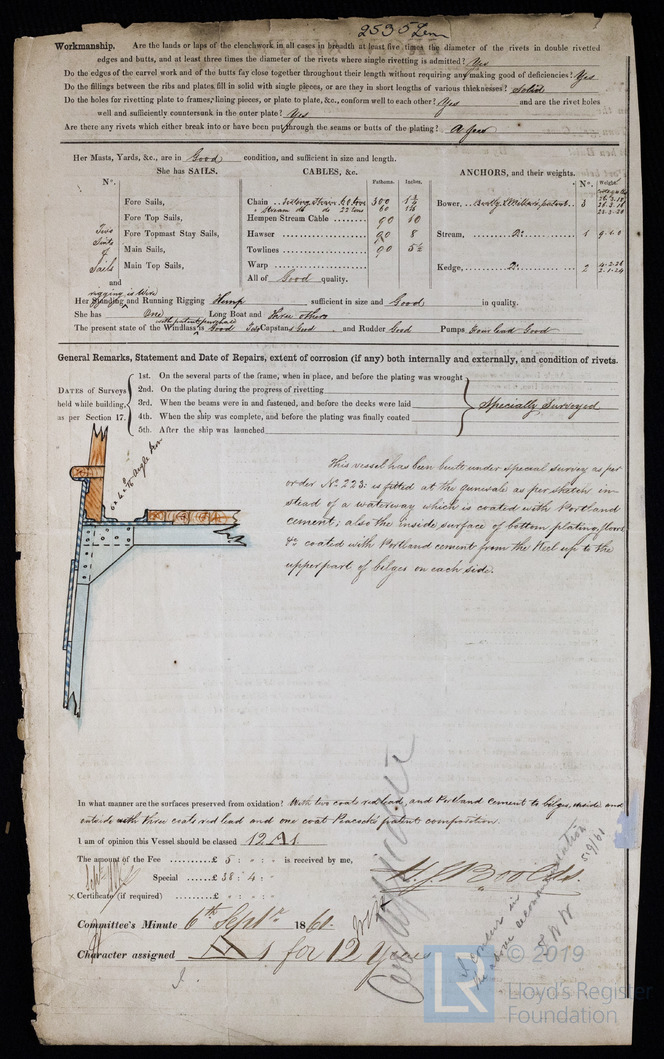 2535 Len
Workmanship. Are the lands or laps of the clenchwork in all cases in breadth at least five times the diameter of the rivets in double rivetted
edges and butts, and at least three times the diameter of the rivets where single rivetting is admitted? Yes
Do the edges of the carvel work and of the butts fay close together throughout their length without requiring any making good of deficiencies? Yes
Do the fillings between the ribs and plates fill in solid with single pieces, or are they in short lengths of various thicknesses? Solid
Do the holes for rivetting plate to frames, lining pieces, or plate to plate, &c., conform well to each other? Yes and are the rivet holes
well and sufficiently countersunk in the outer plate? Yes
Are there any rivets which either break into or have been put through the seams or butts of the plating? A few
Her Masts, Yards, &c., are in Good condition, and sufficient in size and length.
She has SAILS. CABLES, &c. ANCHORS, and their weights.
N°. Fathoms. Inches. N°.
Fore Sails, Chain 300 1 1/2 Bower, 3
Stream do do 22 tons 60
Fore Top Sails, Hempen Stream Cable 90 10
Two Suits of Sails
Fore Topmast Stay Sails, Hawser 90 8 Stream, Do 1 9.1.0
Main Sails, Towlines 90 5 1/2
Main Top Sails, Warp Kedge, Do 2
and All of Good quality.
rigging is Wire
Her Standing and Running Rigging Hemp sufficient in size and Good in quality.
She has One Long Boat and three others
with patent purchase
The present state of the Windlass is Good Capstan Good and Rudder Good Pumps Four lead Good
General Remarks, Statement and Date of Repairs, extent of corrosion (if any) both internally and externally, and condition of rivets.
DATES of Surveys held while building, as per Section 17.
1st. On the several parts of the frame, when in place, and before the plating was wrought
2nd. On the plating during the progress of rivetting
3rd. When the beams were in and fastened, and before the decks were laid
4th. When the ship was complete, and before the plating was finally coated
5th. After the ship was launched
Specially Surveyed
angle Iron
This vessel has been built under special survey as per
order No. 223: is fitted at the gunwale as per sketch in-
stead of a waterway which is coated with Portland
cement; also the inside surface of bottom plating, floors
&c coated with Portland cement from the Keel up to the
upper part of bilges on each side.
In what manner are the surfaces preserved from oxidation? With two coats red lead, and Portland cement to bilges, inside and
outside with three coats red lead and one coat Peacock's patent composition.
I am of opinion this Vessel should be classed 12 A 1
The amount of the Fee £ 5 : - : - is received by me,
Special £ 38 : 4 : -
Certificate (if required) £
Committee's Minute 6th Septr 1861.
Character assigned A 1 for 12 Years
I concur in
the above recommendation
5/9/61
© 2019
Lloyd's Register
Foundation
LR